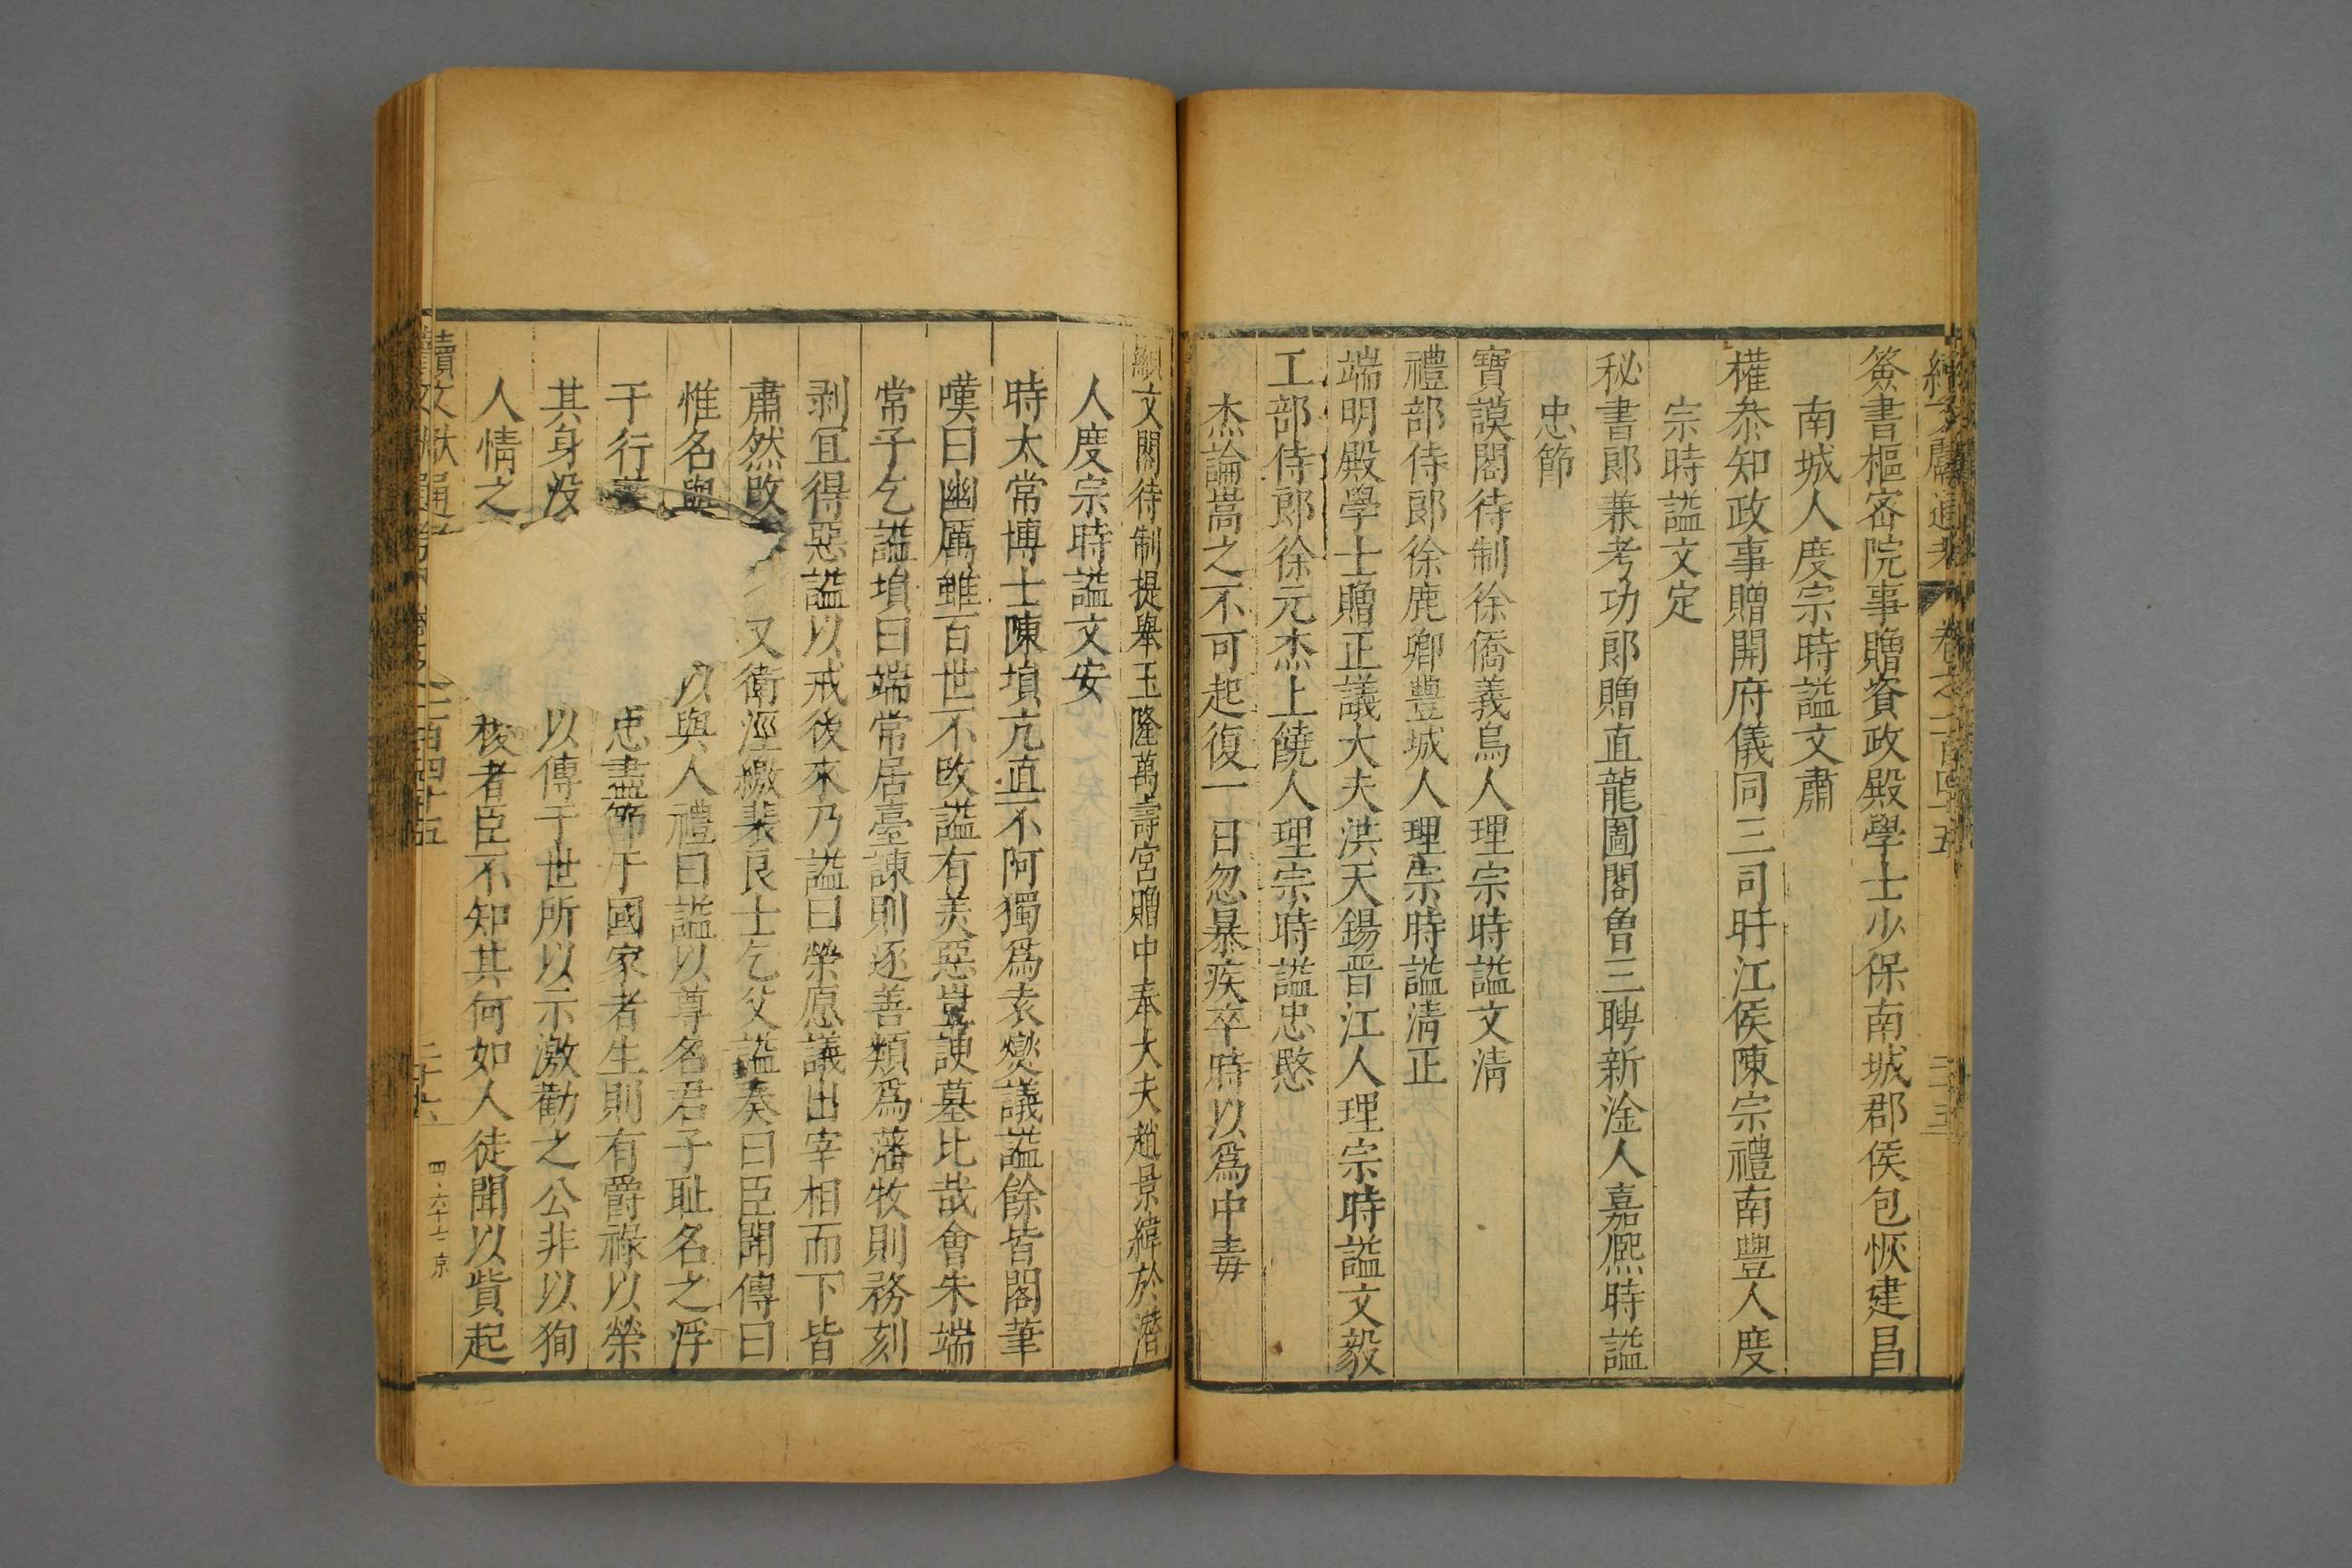 續文獻通考 卷之一百四十五
簽書樞密院事贈資政殿學士少保南城郡侯包恢建昌
南城人度宗時謚文肅
權叅知政事贈開府儀同三司旴江侯陳宗禮南豐人度
宗時謚文定
秘書郎兼考功郎贈直龍圖閣魯三聘新淦人嘉熈時謚
忠節
寶謨閣待制徐僑義烏人理宗時謚文清
禮部侍郎徐鹿卿豐城人理宗時謚淸正
端明殿學士贈正議大夫洪天錫晋江人理宗時謚文毅
工部侍郎徐元杰上饒人理宗時謚忠愍
杰論嵩之不可起復一日忽暴疾卒時以爲中毒
顯文閣待制提舉玉隆萬壽宮贈中奉大夫趙景緯於潛
人度宗時謚文安
時太常博士陳塤亢直不阿獨爲袁爕議謚餘皆閣筆
嘆曰幽厲雖百世不改謚有美惡豈諛墓比哉會朱端
常子乞謚塤曰端常居臺諫則逐善類爲藩牧則務刻
剥宜得惡謚以戒後來乃謚曰榮愿議出宰相而下皆
肅然改 又衛涇繳裴良士乞父謚奏曰臣聞傳曰
惟名與 以與人禮曰謚以尊名君子耻名之浮
于行 忠盡節于國家者生則有爵祿以榮
其身没 以傳于世所以示激勸之公非以狥
人情之 稜者臣不知其何如人徒聞以貲起
續文獻通考 一百四十五 二十六 四·六十七 京